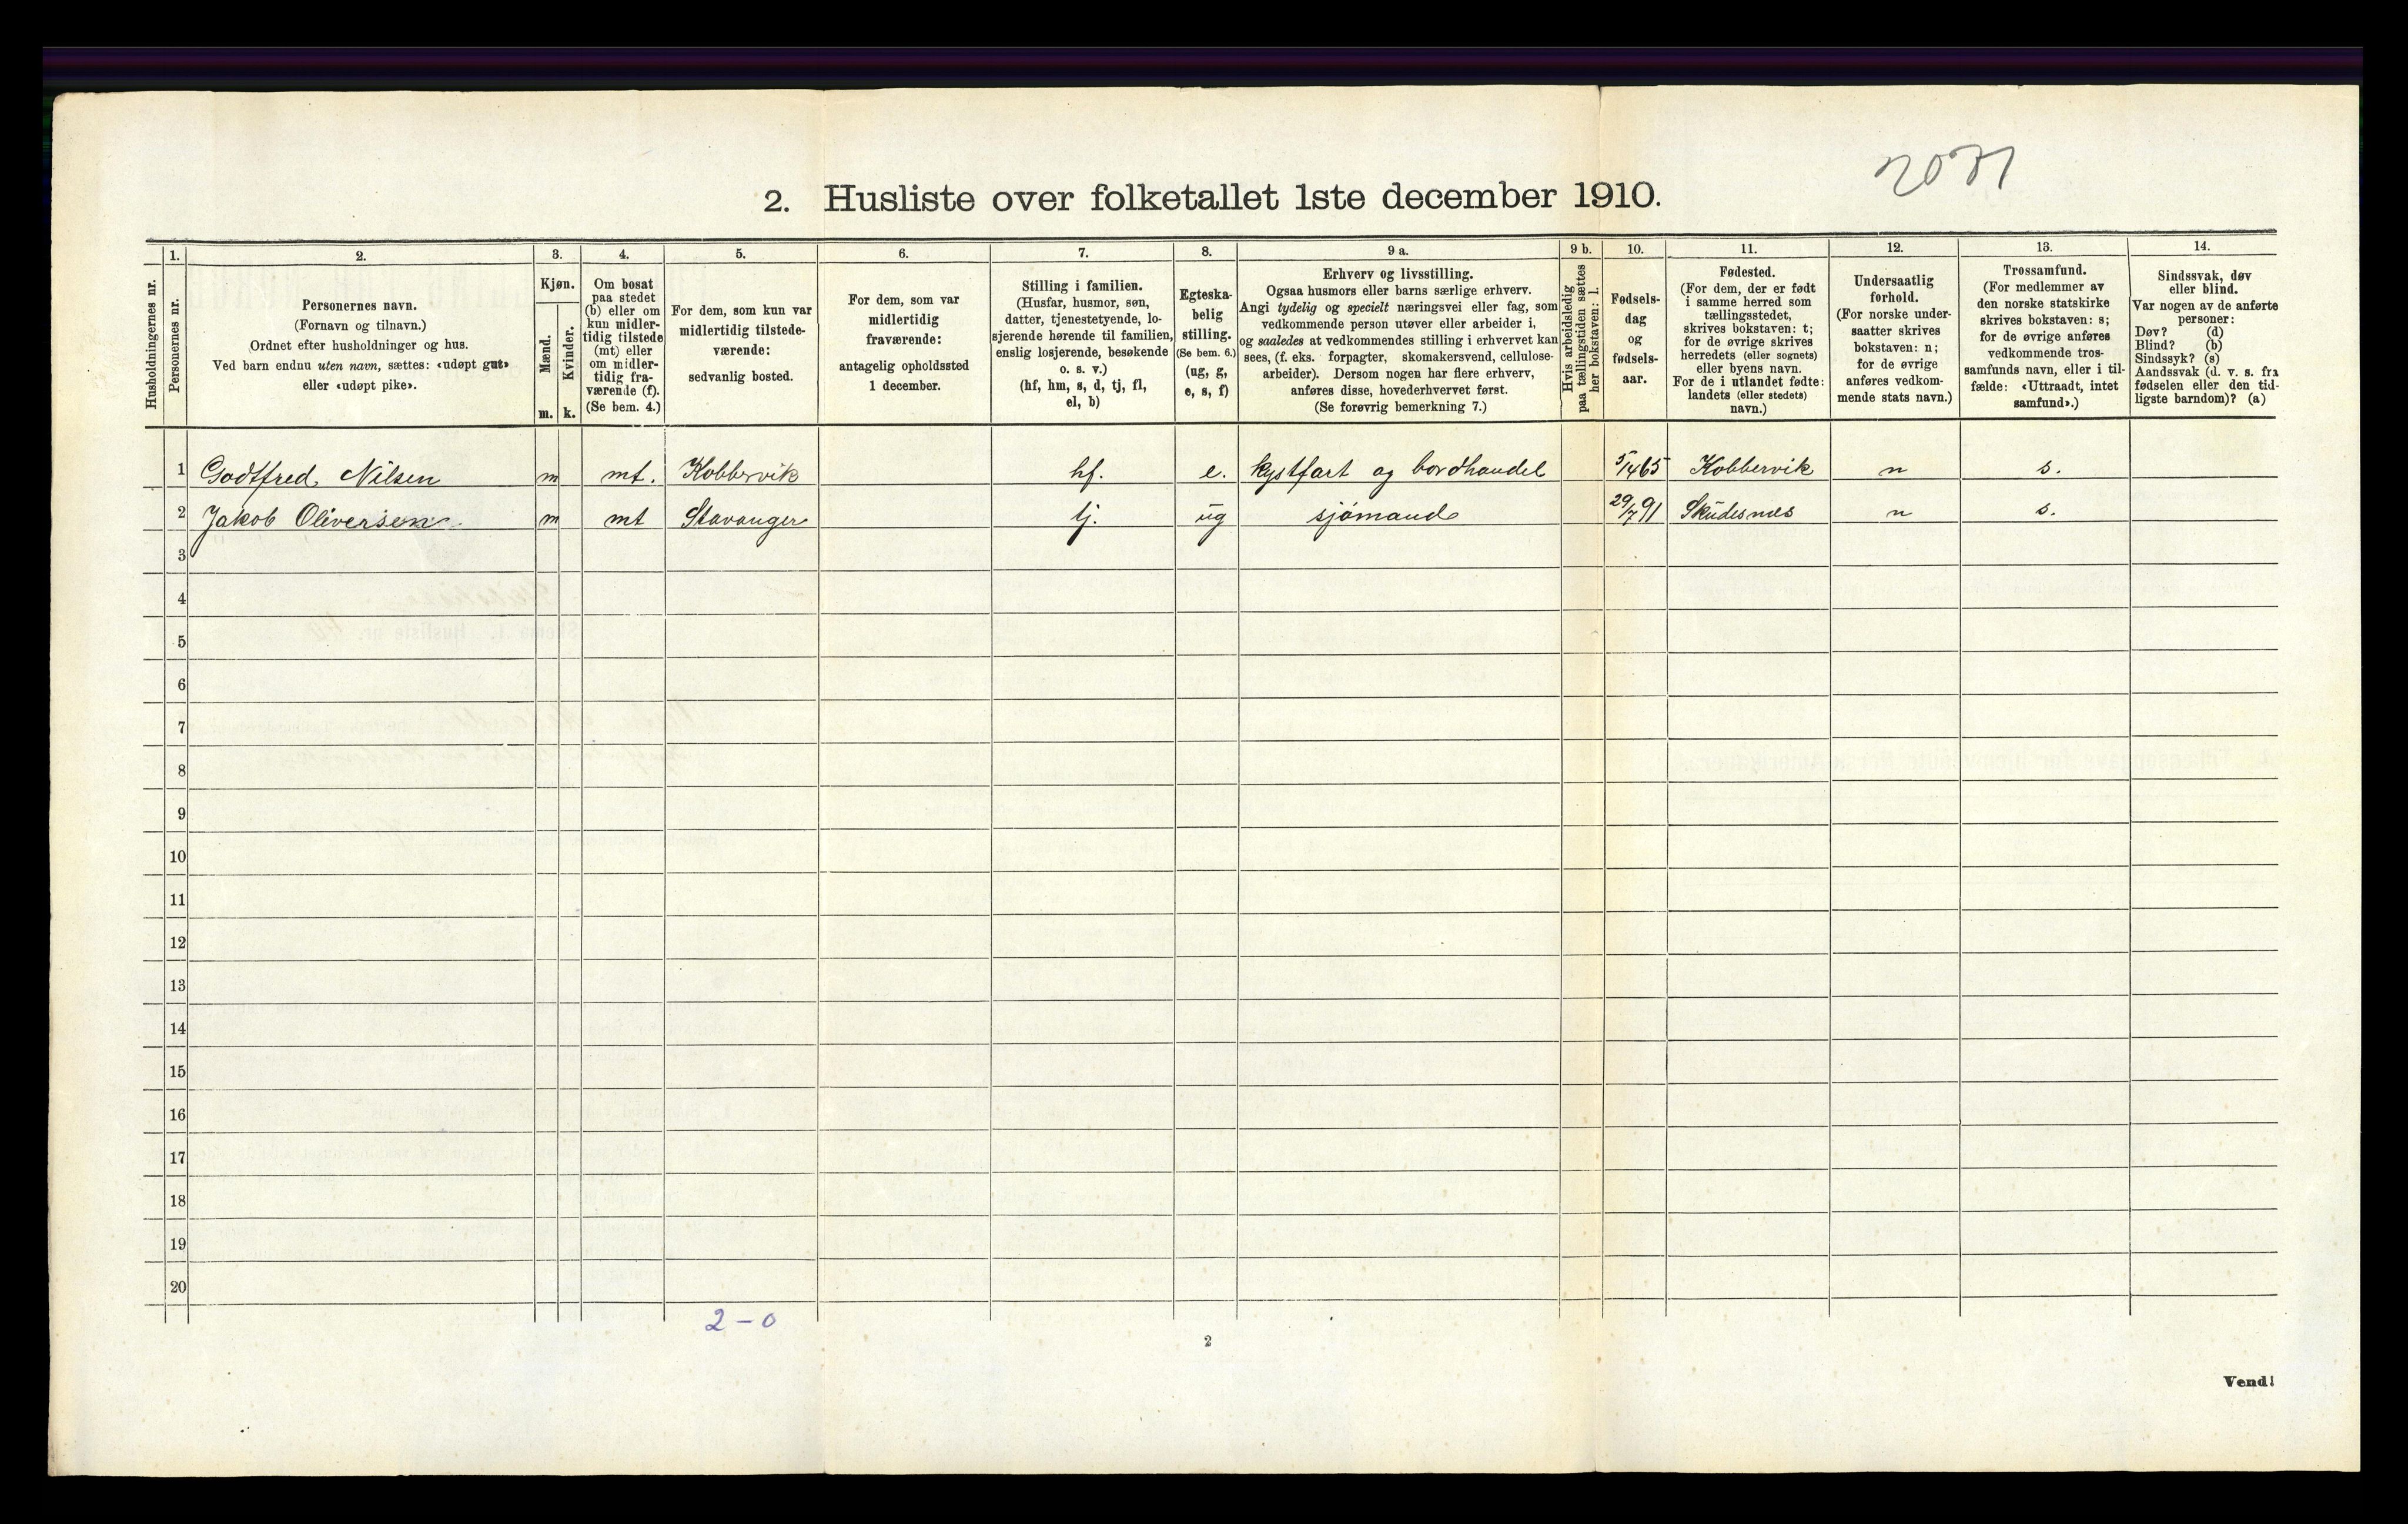 2071
2. Husliste over folketallet 1ste december 1910.
Husholdningernes nr.
1.
Personernes nr.
2.
Personernes navn.
(Fornavn og tilnavn.)
Ordnet efter husholdninger og hus.
Ved barn endnu uten navn, sættes: «udøpt gut»
eller «udøpt pike».
3.
Kjøn.
Mænd.
Kvinder.
m. k.
4.
Om bosat
paa stedet
(b) eller om
kun midler-
tidig tilstede
(mt) eller
om midler-
tidig fra-
værende (f).
(Se bem. 4.)
5.
For dem, som kun var
midlertidig tilstede-
værende:
sedvanlig bosted.
6.
For dem, som var
midlertidig
fraværende:
antagelig opholdssted
1 december.
7.
Stilling i familien.
(Husfar, husmor, søn,
datter, tjenestetyende, lo-
sjerende hørende til familien,
enslig losjerende, besøkende
o. s. v.)
(hf, hm, s, d, tj, fl,
el, b)
8.
Egteska-
belig
stilling.
(Se bem. 6.)
(ug, g,
e, s, f)
9 a.
Erhverv og livsstilling.
Ogsaa husmors eller barns særlige erhverv.
Angi tydelig og specielt næringsvei eller fag, som
vedkommende person utøver eller arbeider i,
og saaledes at vedkommendes stilling i erhvervet kan
sees, (f. eks. forpagter, skomakersvend, cellulose-
arbeider). Dersom nogen har flere erhverv,
anføres disse, hovederhvervet først.
(Se forøvrig bemerkning 7.)
9 b.
Hvis arbeidsledig
paa tællingstiden sættes
her bokstaven: l.
10.
Fødsels-
dag
og
fødsels-
aar.
11.
Fødested.
(For dem, der er født
i samme herred som
tællingsstedet,
skrives bokstaven: t;
for de øvrige skrives
herredets (eller sognets)
eller byens navn.
For de i utlandet fødte:
landets (eller stedets)
navn.)
12.
Undersaatlig
forhold.
(For norske under-
saatter skrives
bokstaven: n;
for de øvrige
anføres vedkom-
mende stats navn.)
13.
Trossamfund.
(For medlemmer av
den norske statskirke
skrives bokstaven: s;
for de øvrige anføres
vedkommende tros-
samfunds navn, eller i til-
fælde: «Uttraadt, intet
samfund».)
14.
Sindssvak, døv
eller blind.
Var nogen av de anførte
personer:
Døv? (d)
Blind? (b)
Sindssyk? (s)
Aandssvak (d. v. s. fra
fødselen eller den tid-
ligste barndom)? (a)
1 Godtfred Nilsen m mt. Kobbervik hf. e. kystfart og bordhandel 5/4 65 Kobbervik n s.
2 Jakob Oliversen m mt Stavanger tj. ug sjømand 29/7 91 Skudesnæs n s.
3
4
5
6
7
8
9
10
11
12
13
14
15
16
17
18
19
20
2 – 0
2
Vend!